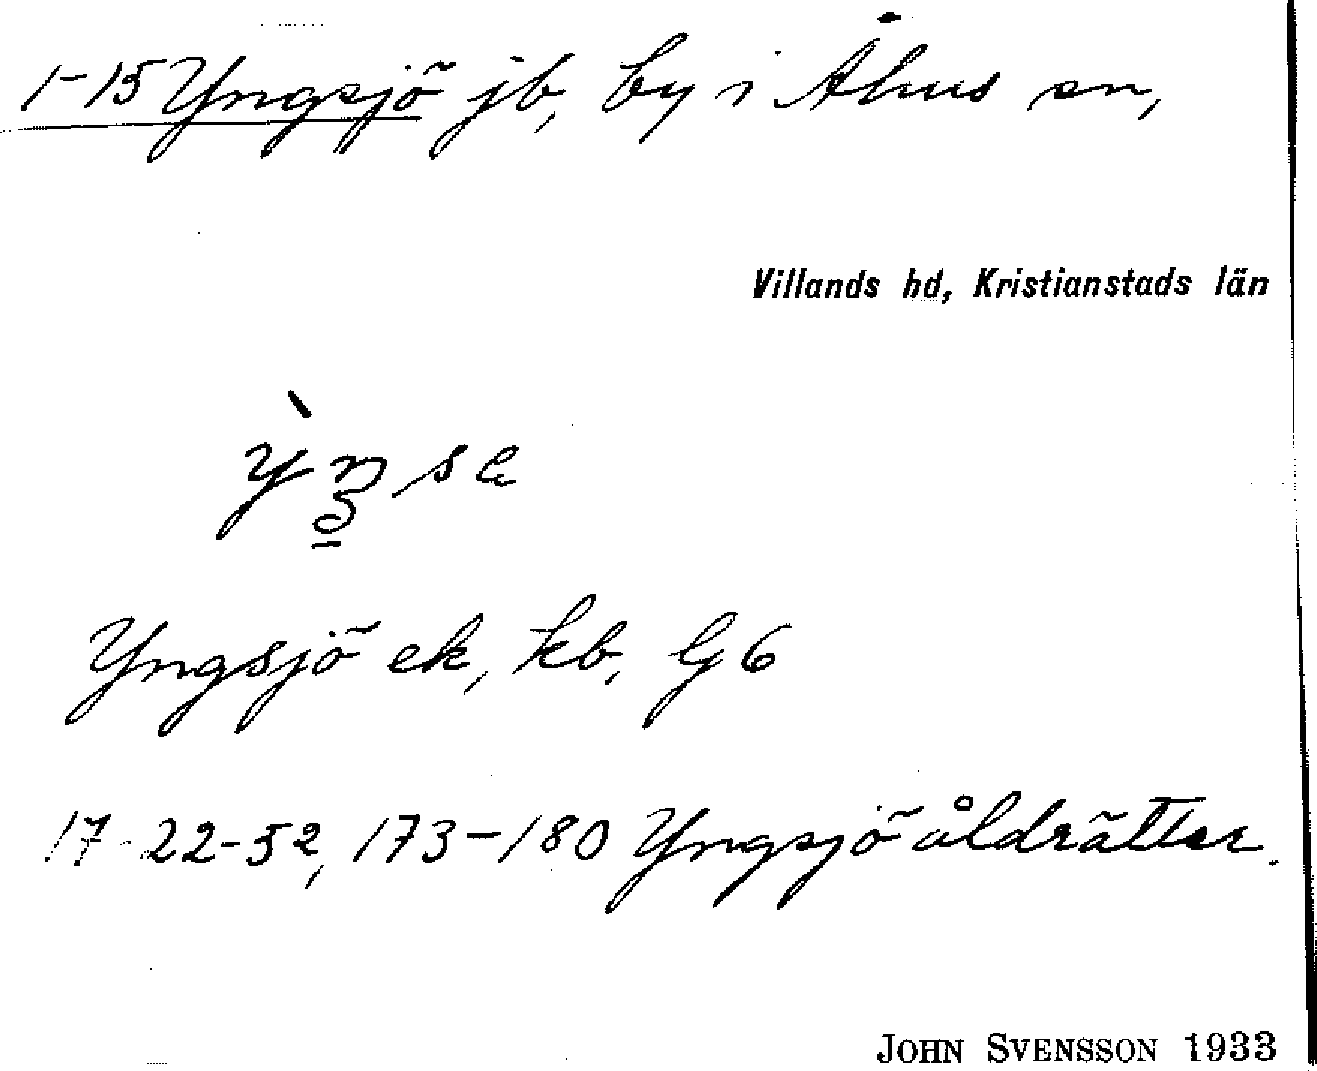 1-15 Yngsjö jb, by i Åhus sn,
Villands hd, Kristianstads län
Yngsjö ek, kb, G 6
17-22-52, 173-180 Yngsjö åldrätter.
JOHN SVENSSON 1933